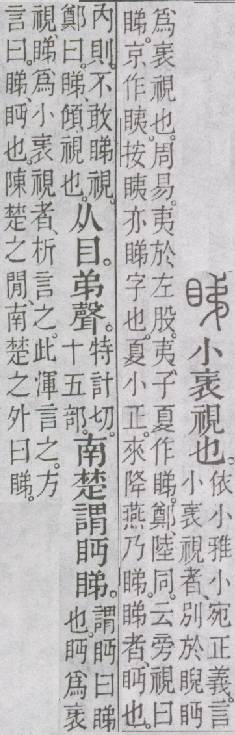 睇小衺視也。依小雅小宛正義。言小衺視者、別於睨眄
爲衺視也。周易。夷於左股。夷、子夏作睇。鄭陸同。云旁視曰
睇。京作眱。按眱亦睇字也。夏小正。來降燕乃睇。睇者、眄也。
內則。不敢睇視。鄭曰。睇、傾視也。从目。弟聲。特計切。十五部。南楚謂眄睇。謂眄曰睇也。眄爲衺
視睇爲小衺視者、析言之。此渾言之。方
言曰。睇、眄也。陳楚之閒、南楚之外曰睇。